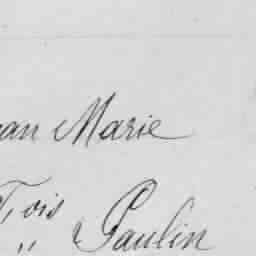 an Marie
Fois
" & Paulin